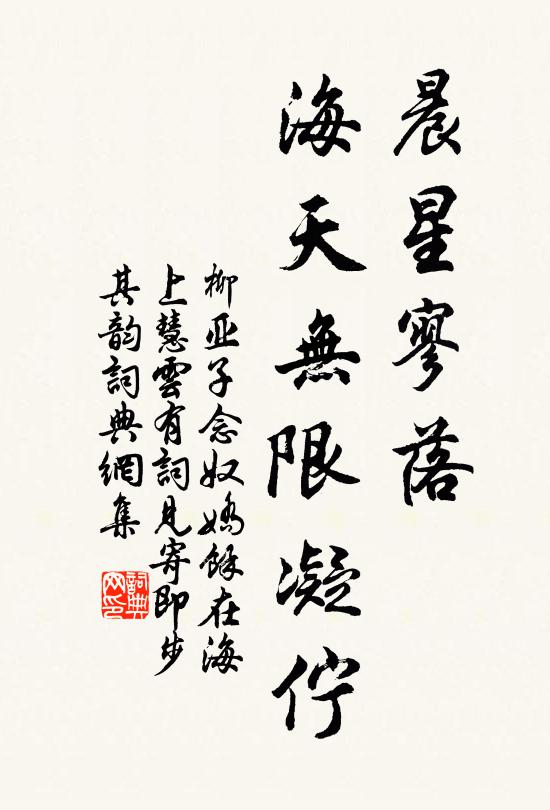 晨星寥落
海天無限凝佇
柳亚子念奴嬌餘在海
上慧雲有詞見寄即步
其韵詞典網集
詞典网印